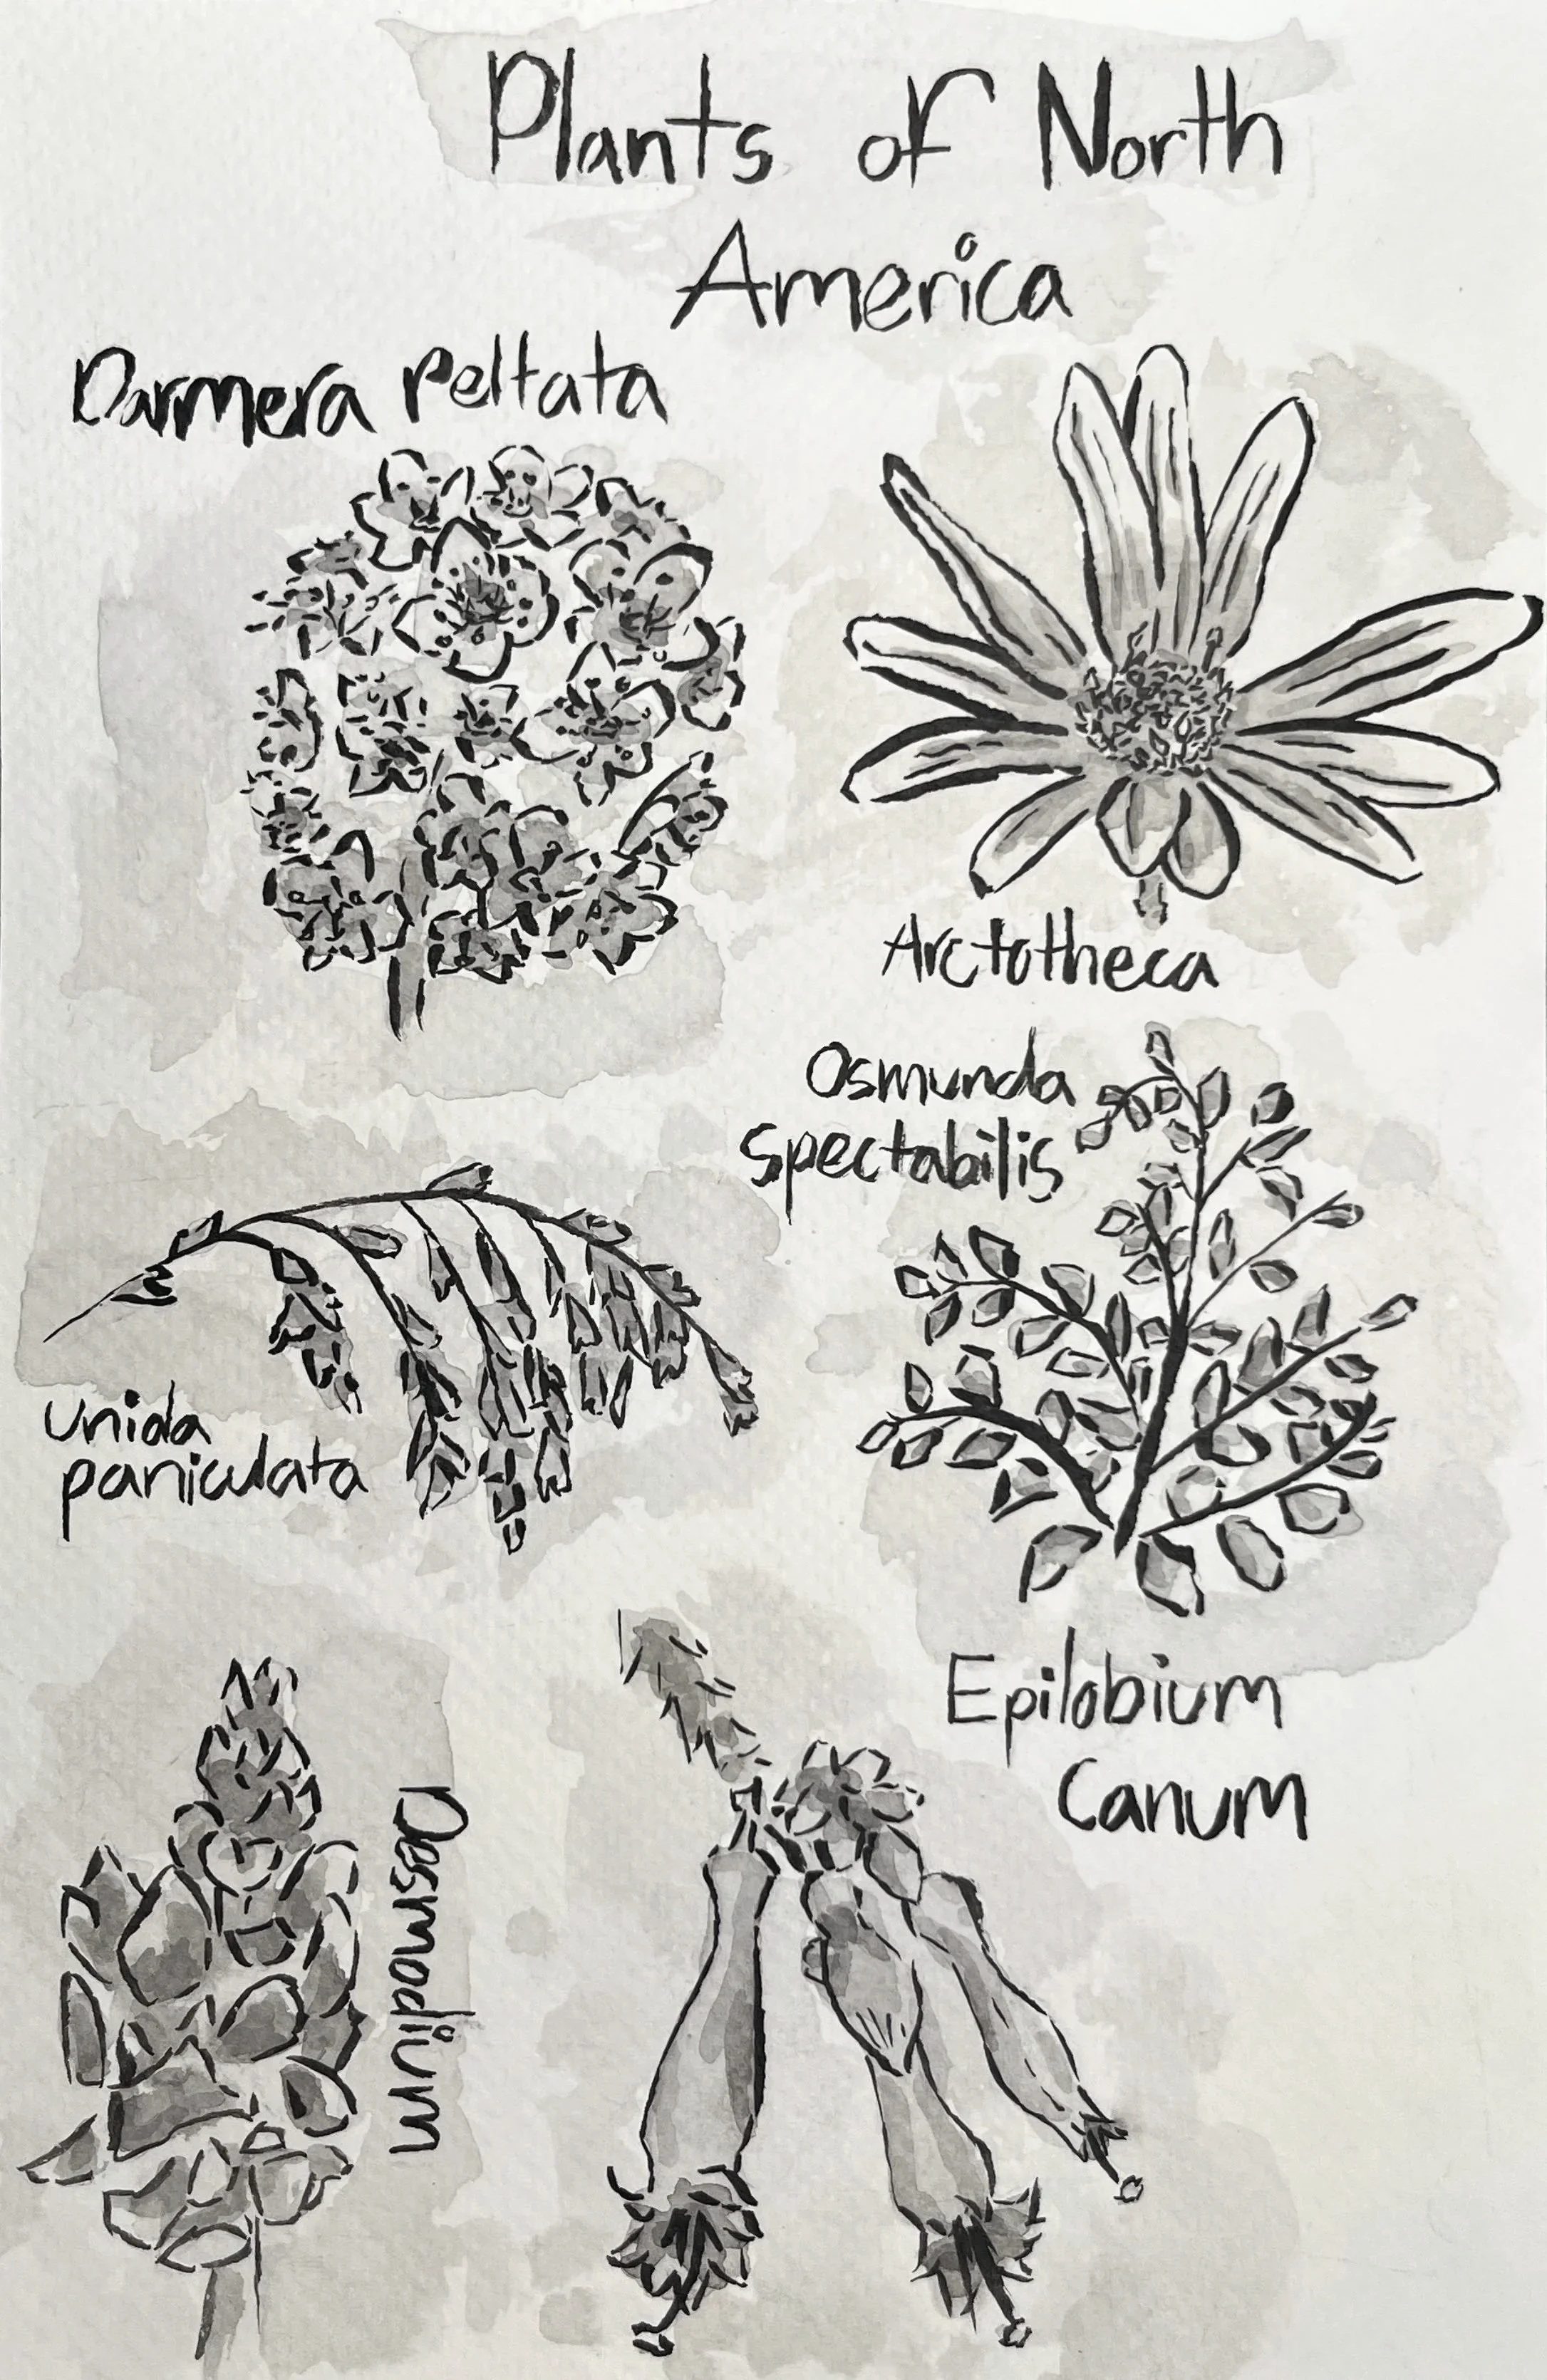 Plants of North
America
Darmera peltata
Arctotheca
Osmunda
Spectabilis
Unida
paniculata
Epilobium
Canum
Desmodium